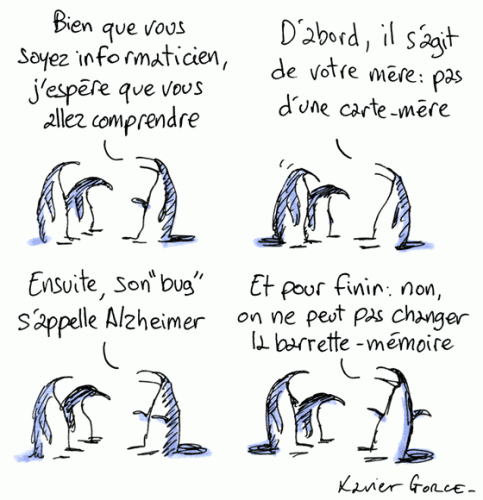 Bien que vous
soyez informaticien,
j'espère que vous
allez comprendre
D'abord, il s'agit
de votre mère: pas
d'une carte-mère
Ensuite, son "bug"
s'appelle Alzheimer
Et pour finin: non,
on ne peut pas changer
la barrette-mémoire
Xavier GORCE-